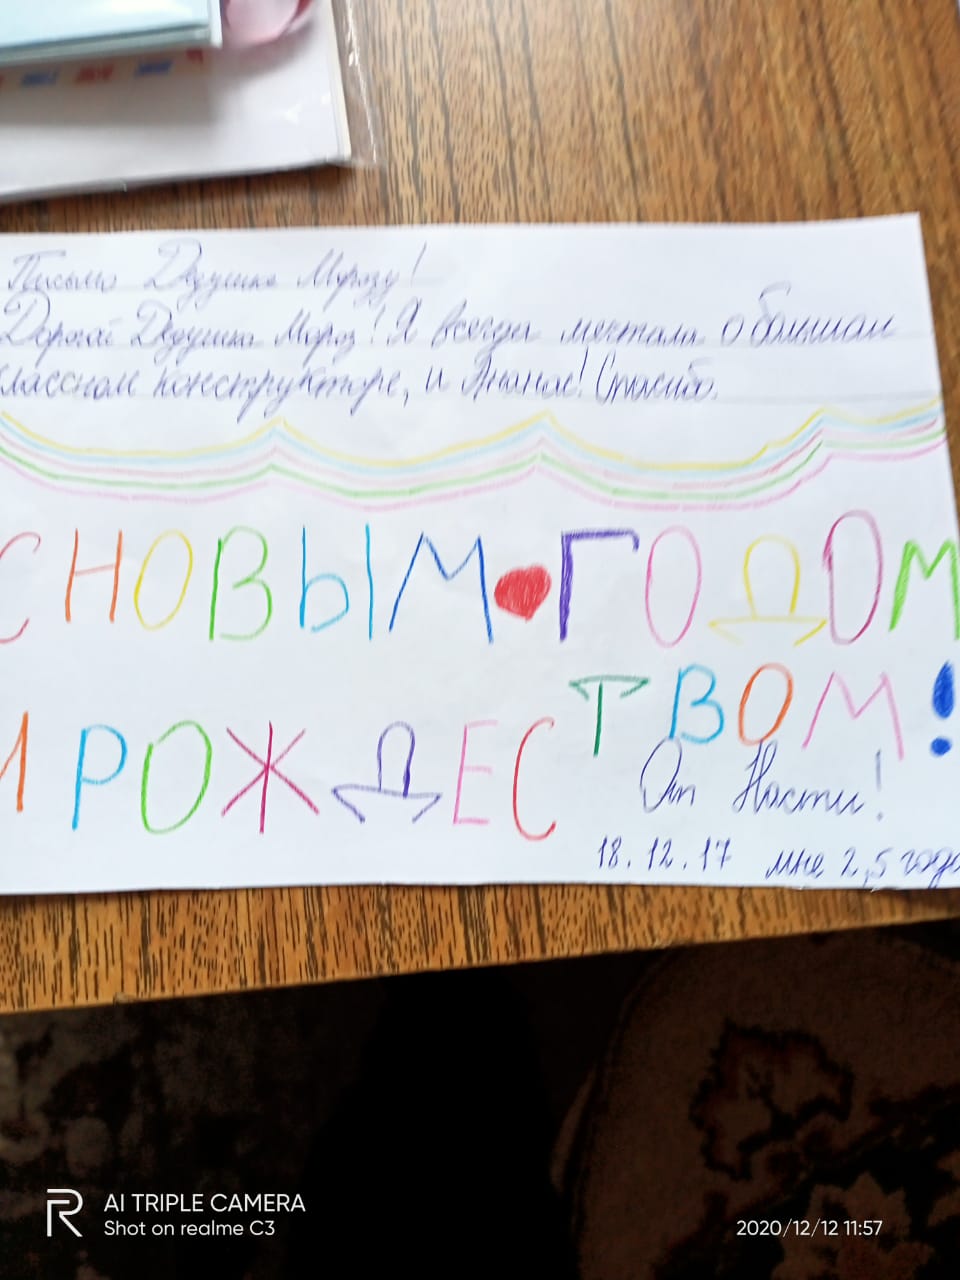 Письмо Дедушке Морозу!
Дорогой Дедушка Мороз! Я всегда мечтала о большом
классном конструкторе, и Ананас! Спасибо.
С НОВЫМ ГОДОМ
И РОЖДЕСТВОМ!
От Насти!
18.12.17 мне 2,5 года
AI TRIPLE CAMERA
Shot on realme C3
2020/12/12 11:57